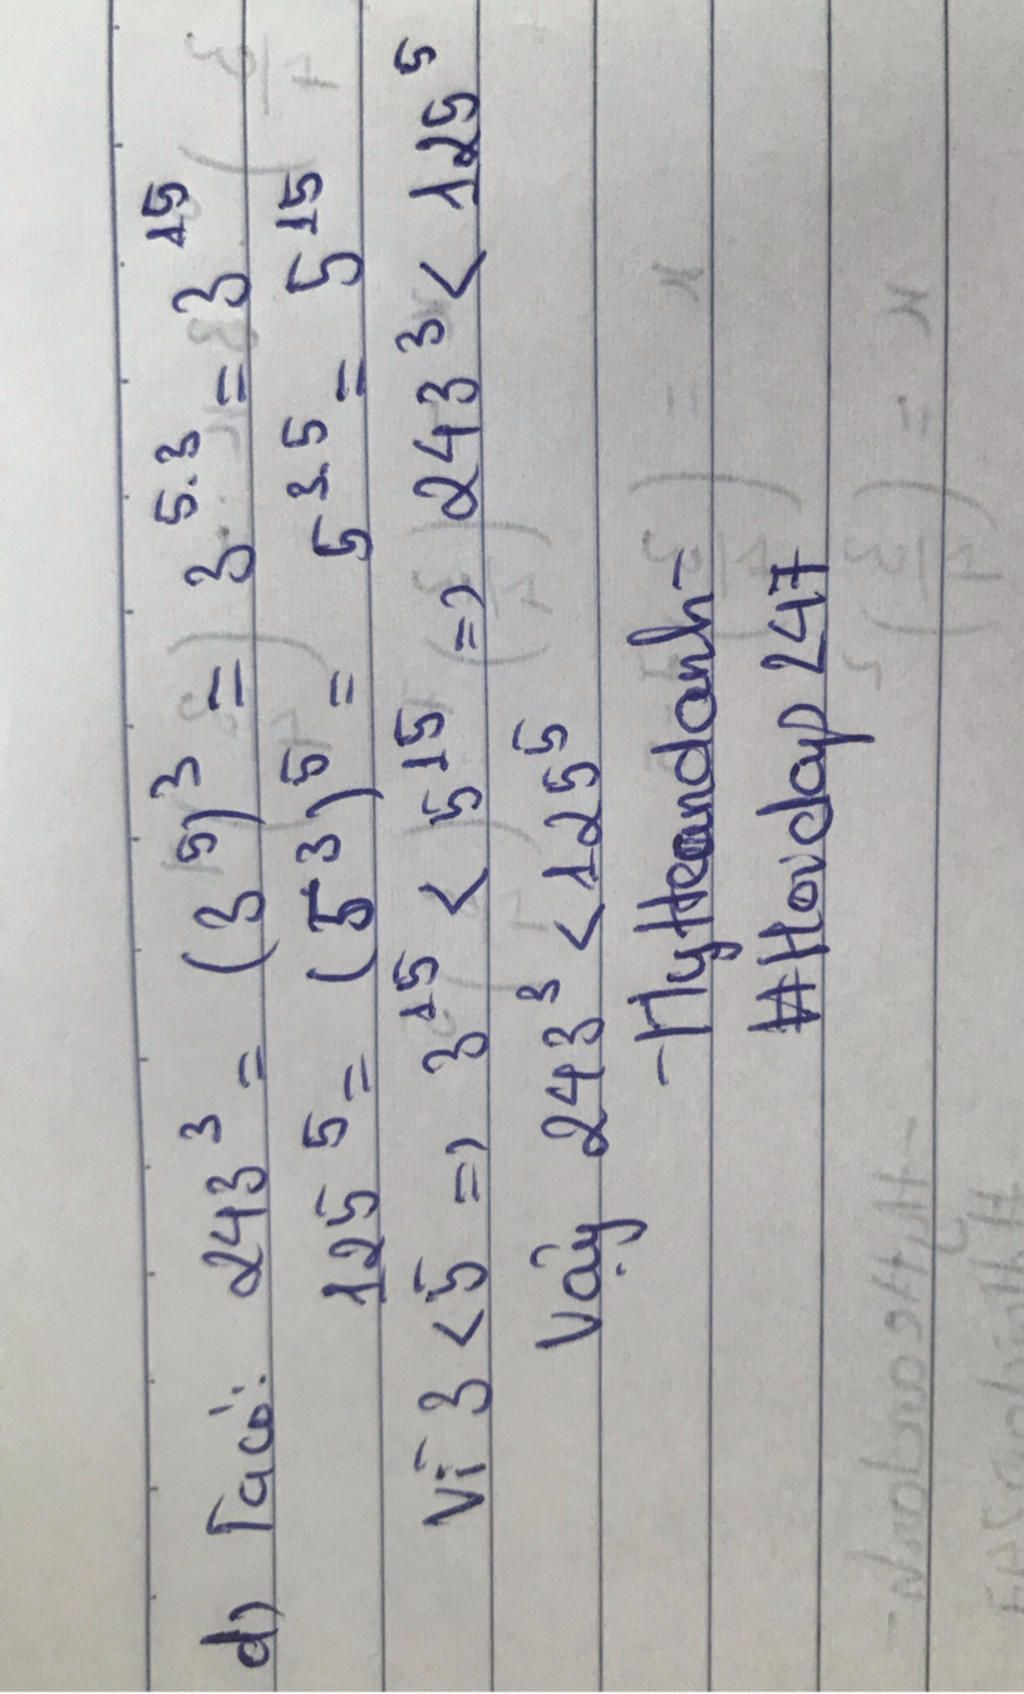 d) Ta có: 243³ = (3⁵)³ = 3⁵·³ = 3¹⁵
125⁵ = (5³)⁵ = 5³·⁵ = 5¹⁵
Vì 3 < 5 => 3¹⁵ < 5¹⁵ => 243³ < 125⁵
Vậy 243³ < 125⁵
-MyHeandanh-
#Hoidap247